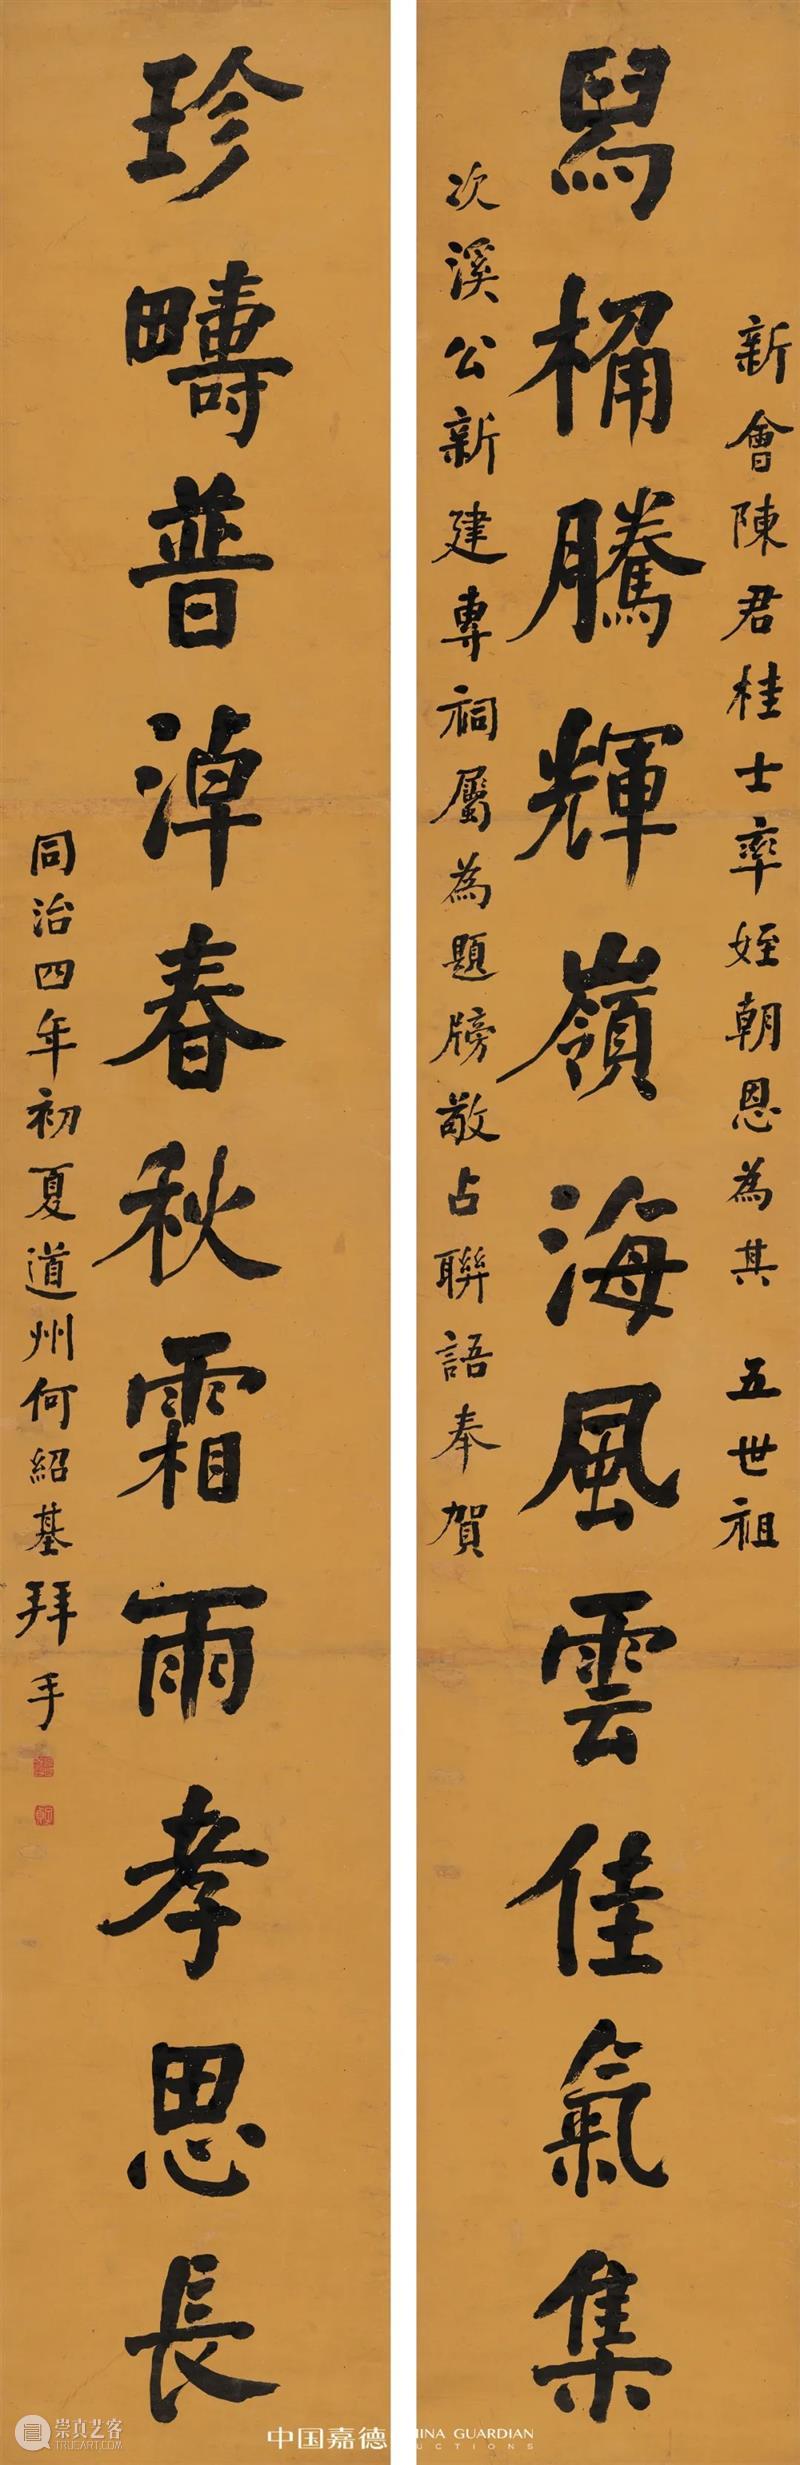 新會陳君桂士率姪朝恩為其 五世祖
舄桷騰輝嶺海風雲佳氣集
次溪公新建專祠屬為題牓敬占聯語奉賀
珍疇普淖春秋霜雨孝思長
同治四年初夏道州何紹基拜手
中国嘉德
HINA GUARDIAN
UCTIONS
崇真艺客
TRUEART.COM